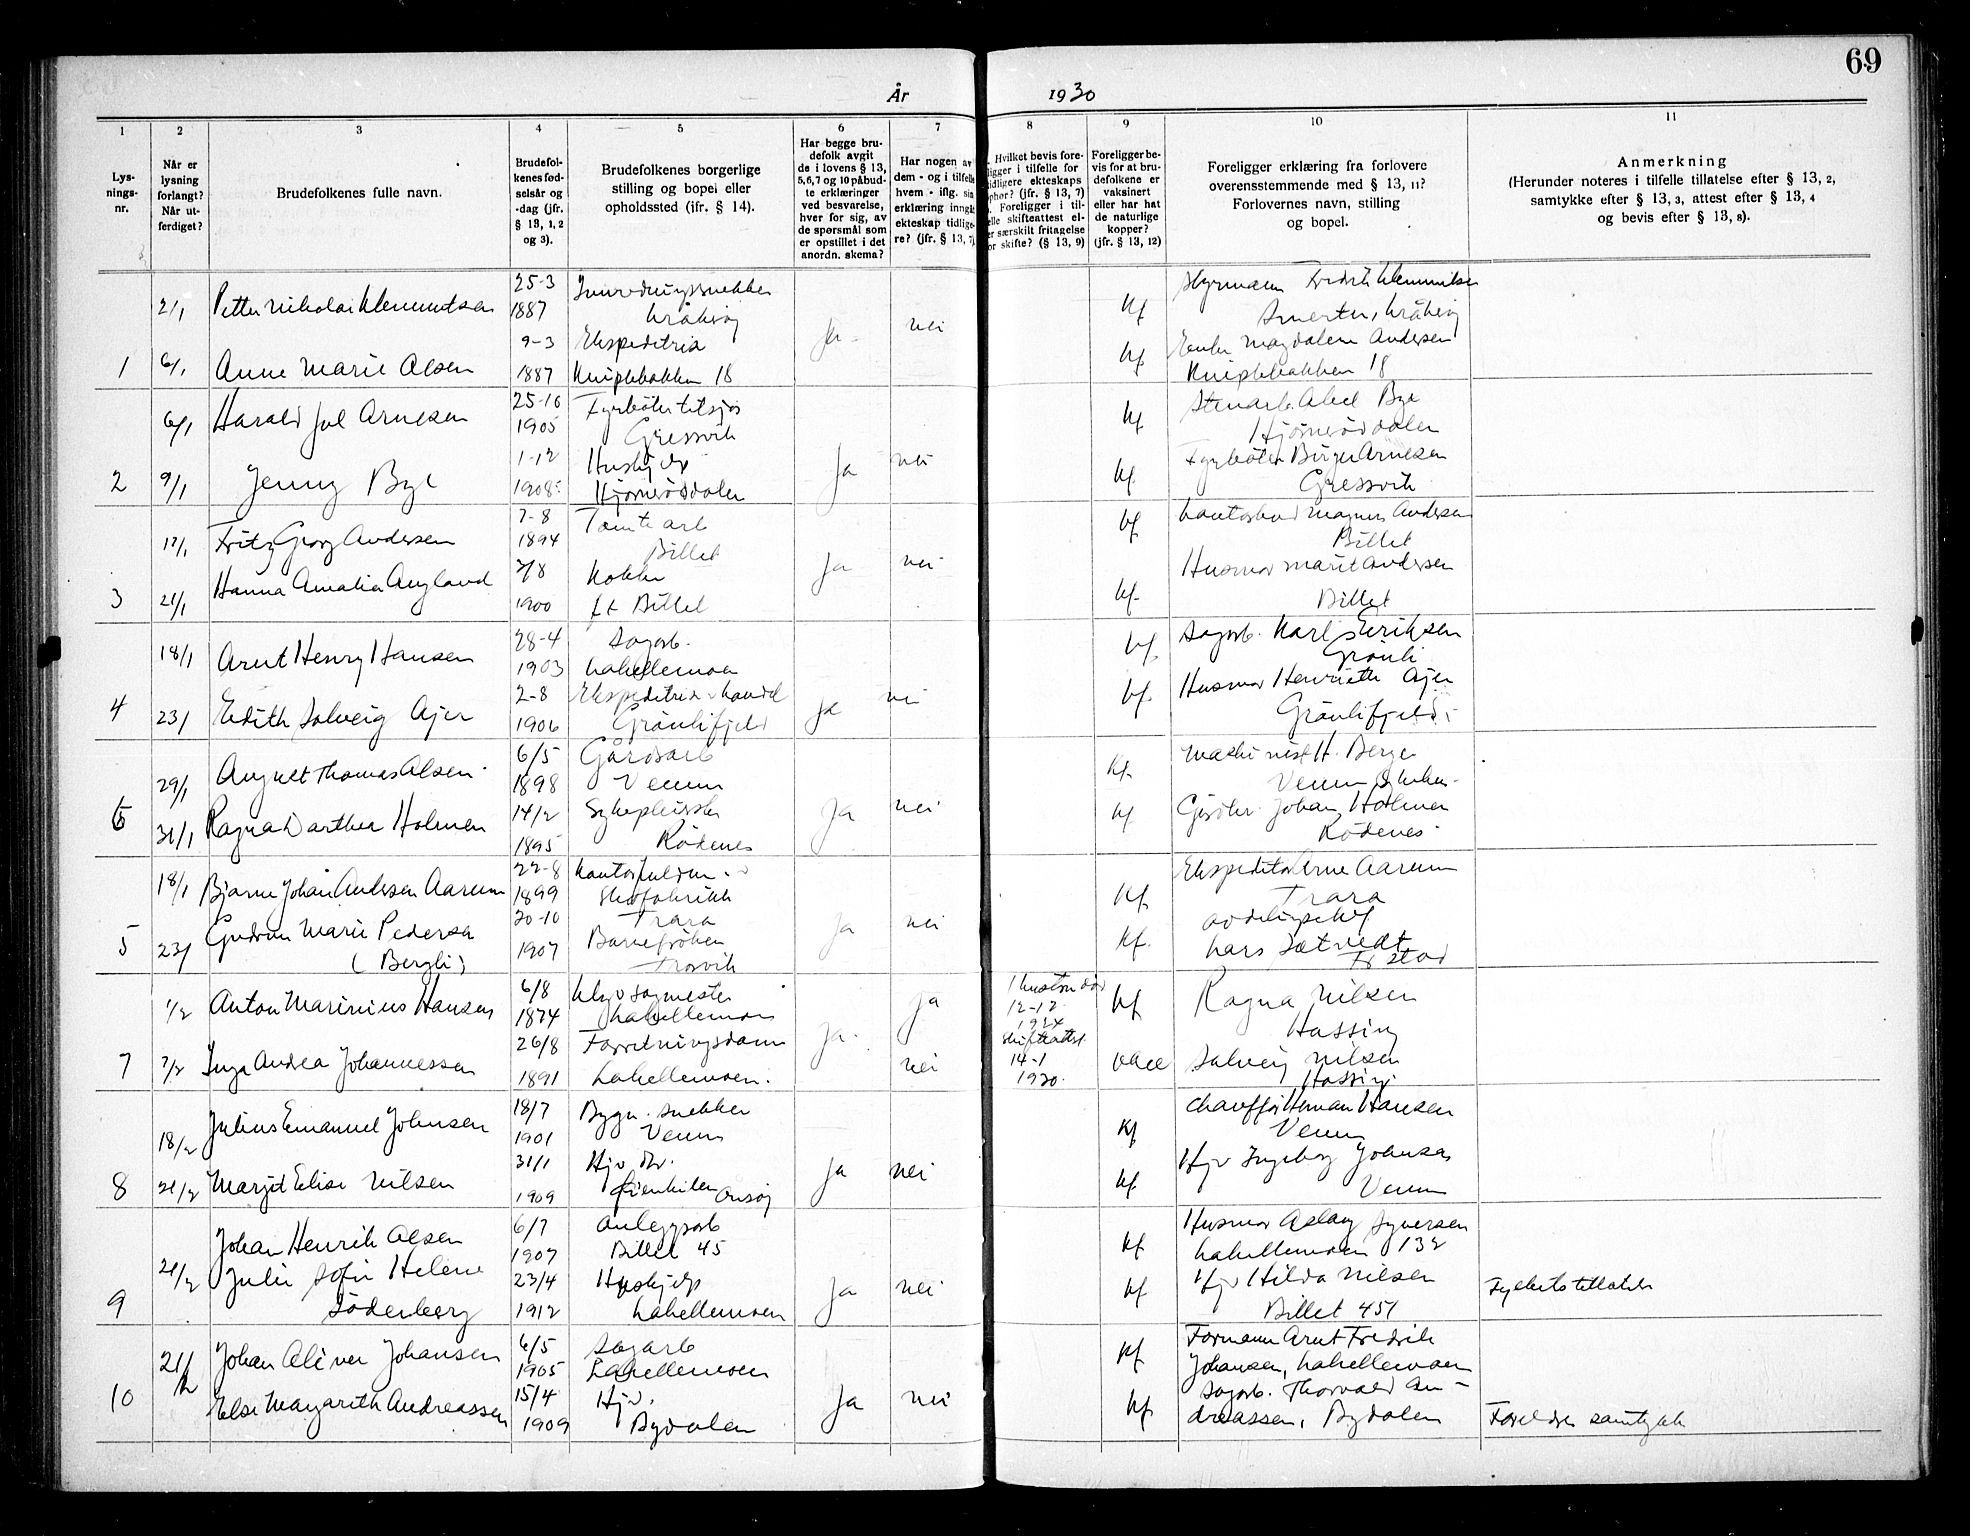 69
År 1930
1 2 3 4 5 6 7 8 9 10 11
Lys-
nings-
nr.
Når er
lysning
forlangt?
Når ut-
ferdiget?
Brudefolkenes fulle navn.
Brudefol-
kenes fød-
selsår og
-dag (jfr.
§ 13, 1, 2
og 3).
Brudefolkenes borgerlige
stilling og bopel eller
opholdssted (ifr. § 14).
Har begge bru-
defolk avgit
de i lovens § 13,
5, 6, 7 og 10 påbud-
te erklæringer
ved besvarelse,
hver for sig, av
de spørsmål som
er opstillet i det
anordn. skema?
Har nogen av
dem - og i tilfelle
hvem - iflg. sin
erklæring inngåt
ekteskap tidlige-
re? (jfr. § 13, 7)
Hvilket bevis fore-
ligger i tilfelle for
tidligere ekteskaps
ophør? (jfr. § 13, 7)
Foreligger i til-
felle skifteattest el-
er særskilt fritagelse
for skifte? (§ 13, 9)
Foreligger be-
vis for at bru-
defolkene er
vaksinert
eller har hat
de naturlige
kopper?
(jfr. § 13, 12)
Foreligger erklæring fra forlovere
overensstemmende med § 13, 11?
Forlovernes navn, stilling
og bopel.
Anmerkning
(Herunder noteres i tilfelle tillatelse efter § 13, 2,
samtykke efter § 13, 3, attest efter § 13, 4
og bevis efter § 13, 8).
1 2/1 6/1
Petter Nikolai Klemmetsen 25-3 1887 Innredningssnekker Kråkerøy
Anne Marie Olsen 9-3 1887 Ekspeditrise Kniplebakken 18
Ja nei kf kf
Styrmann Fredrik Klemmetsen
Smertu, Kråkerøy
Magdalene Andersen
Kniplebakken 18
2 6/1 9/1
Harald Jul Arnesen 25-10 1905 Fyrbøter tilsjøs Gressvik
Jenny Bye 1-12 1908 Hushjelp Hjørnerøddalen
Ja nei kf kf
Stenarb. Abel Bye
Hjørnerøddalen
Fyrbøter Birger Arnesen
Gressvik
3 17/1 21/1
Fritz Georg Andersen 7-8 1894 Tomtearb Billet
Hanna Amalia Augland 7/8 1900 Kokke ft Billet
Ja nei kf kf
Kontorbud Magnus Andersen
Billet
Husmor Marit Andersen
Billet
4 18/1 23/1
Arnt Henry Hansen 28-4 1903 Sagarb. Lahellemoen
Edith Solveig Ajer 2-8 1906 Ekspeditrise handel Grønlifjeld
Ja nei kf kf
Sagarb. Karl Eriksen
Grønli
Husmor Henriette Ajer
Grønlifjeld
6 29/1 31/1
August Thomas Olsen 6/5 1898 Gårdsarb Veum
Ragna Darthea Holmen 14/2 1895 Sykepleierske Rødenes
Ja nei kf kf
Maskinist H. Berger
Veum Sykehus
Gårdbr. Johan Holmen
Rødenes
5 18/1 23/1
Bjarne Johan Andersen Aarum 22-8 1899 Kontorfuldm. Skofabrikk Trara
Gudrun Marie Pedersen
(Bergli) 20-10 1907 Barnefrøken Trosvik
Ja nei kf kf
Ekspeditør Arne Aarum
Trara
avdelingschef
Lars Sætvedt
Fr.stad
7 1/2 7/2
Anton Marinius Hansen 6/8 1874 Sagmester Lahellemoen
Inga Andrea Johannessen 26/8 1891 Forretningsdame Lahellemoen.
Ja. ja nei
1 hustru død
12-12
1924
Skifteattest
14-1
1930.
kf vacc
Ragna Nilsen
Hassing
Solveig Nilsen
Hassing
8 18/2 21/2
Julius Emanuel Johnsen 18/7 1901 Bygn. snekker Veum
Margit Elise Nilsen 31/1 1909 Hjv. Kienkilen Onsøy
Ja nei kf kf
Chauffør Herman Hansen
Veum
Hjv Ingeborg Johnsen
Veum
9 21/2
Johan Henrik Olsen 6/7 1907 Anleggsarb Billet 45
Julie Sofie Helene
Söderberg 23/4 1912 Hushjelp Lahellemoen
Ja nei kf kf
Husmor Aslaug Syversen
Lahellemoen 132
Hjv Hilda Nilsen
Billet 451
Fylkets tillatelse
10 21/2
Johan Oliver Johansen 6/5 1905 Sagarb Lahellemoen
Else Margarith Andreassen 15/4 1909 Hjv. Bydalen
Ja nei kf kf
Formann Arnt Fredrik
Johansen, Lahellemoen
Sagarb. Thorvald An-
dreassen, Bydalen
Foreldres samtykke